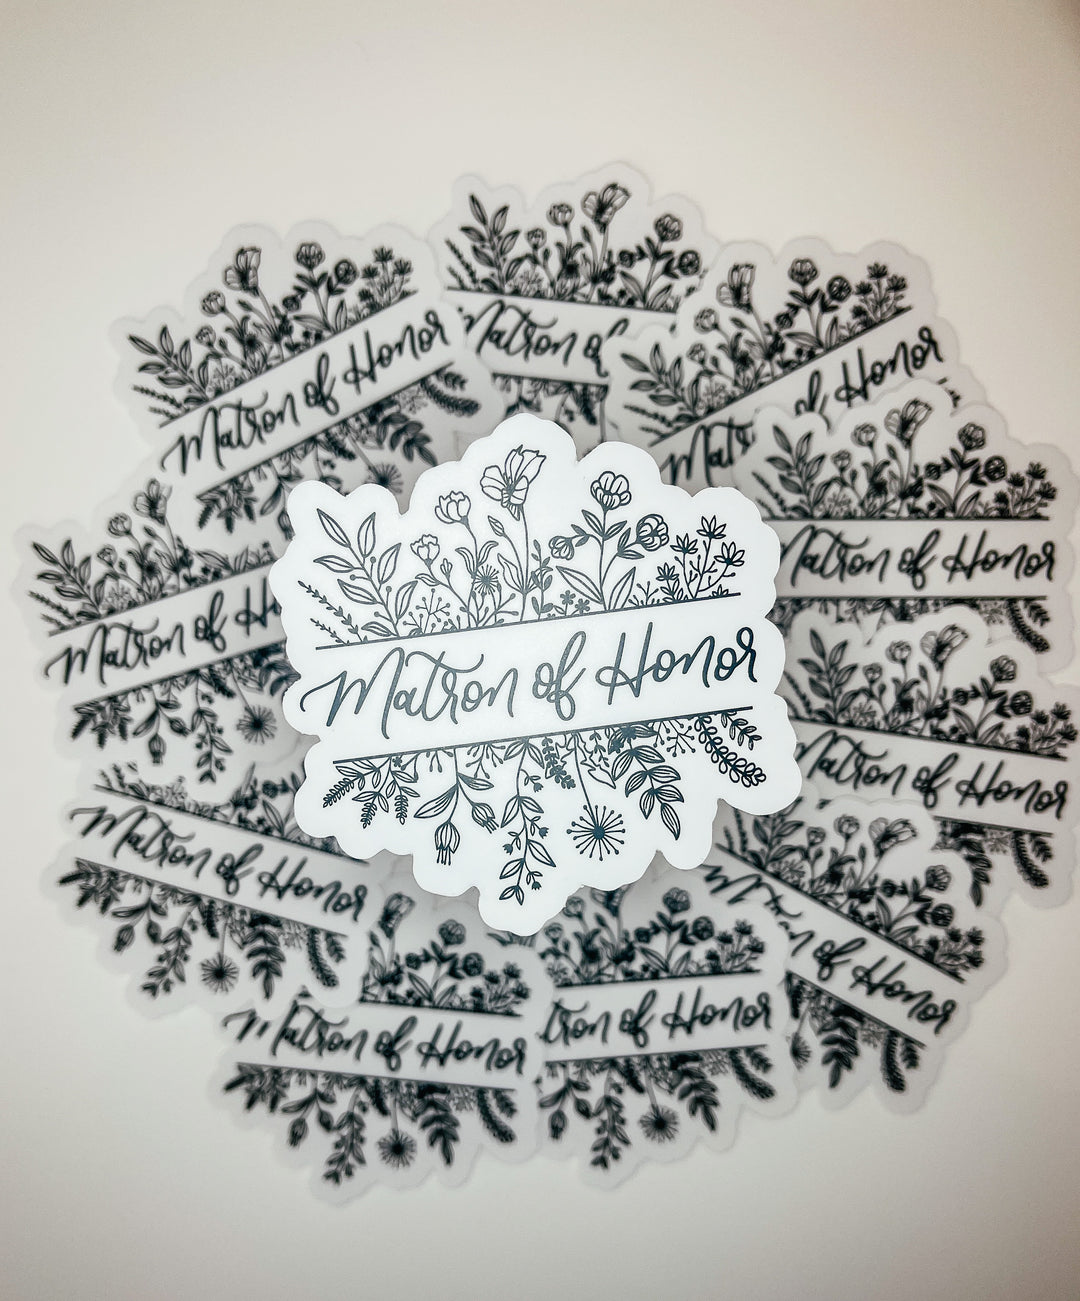 Matron of
Matron of Honor
Mat of Honor
Matron of Honor
Matron of Honor
Matron of Ho
Matron of Honor
Matron of Honor
Matron of Honor
of Honor
tron of Honor
Matron of Honor